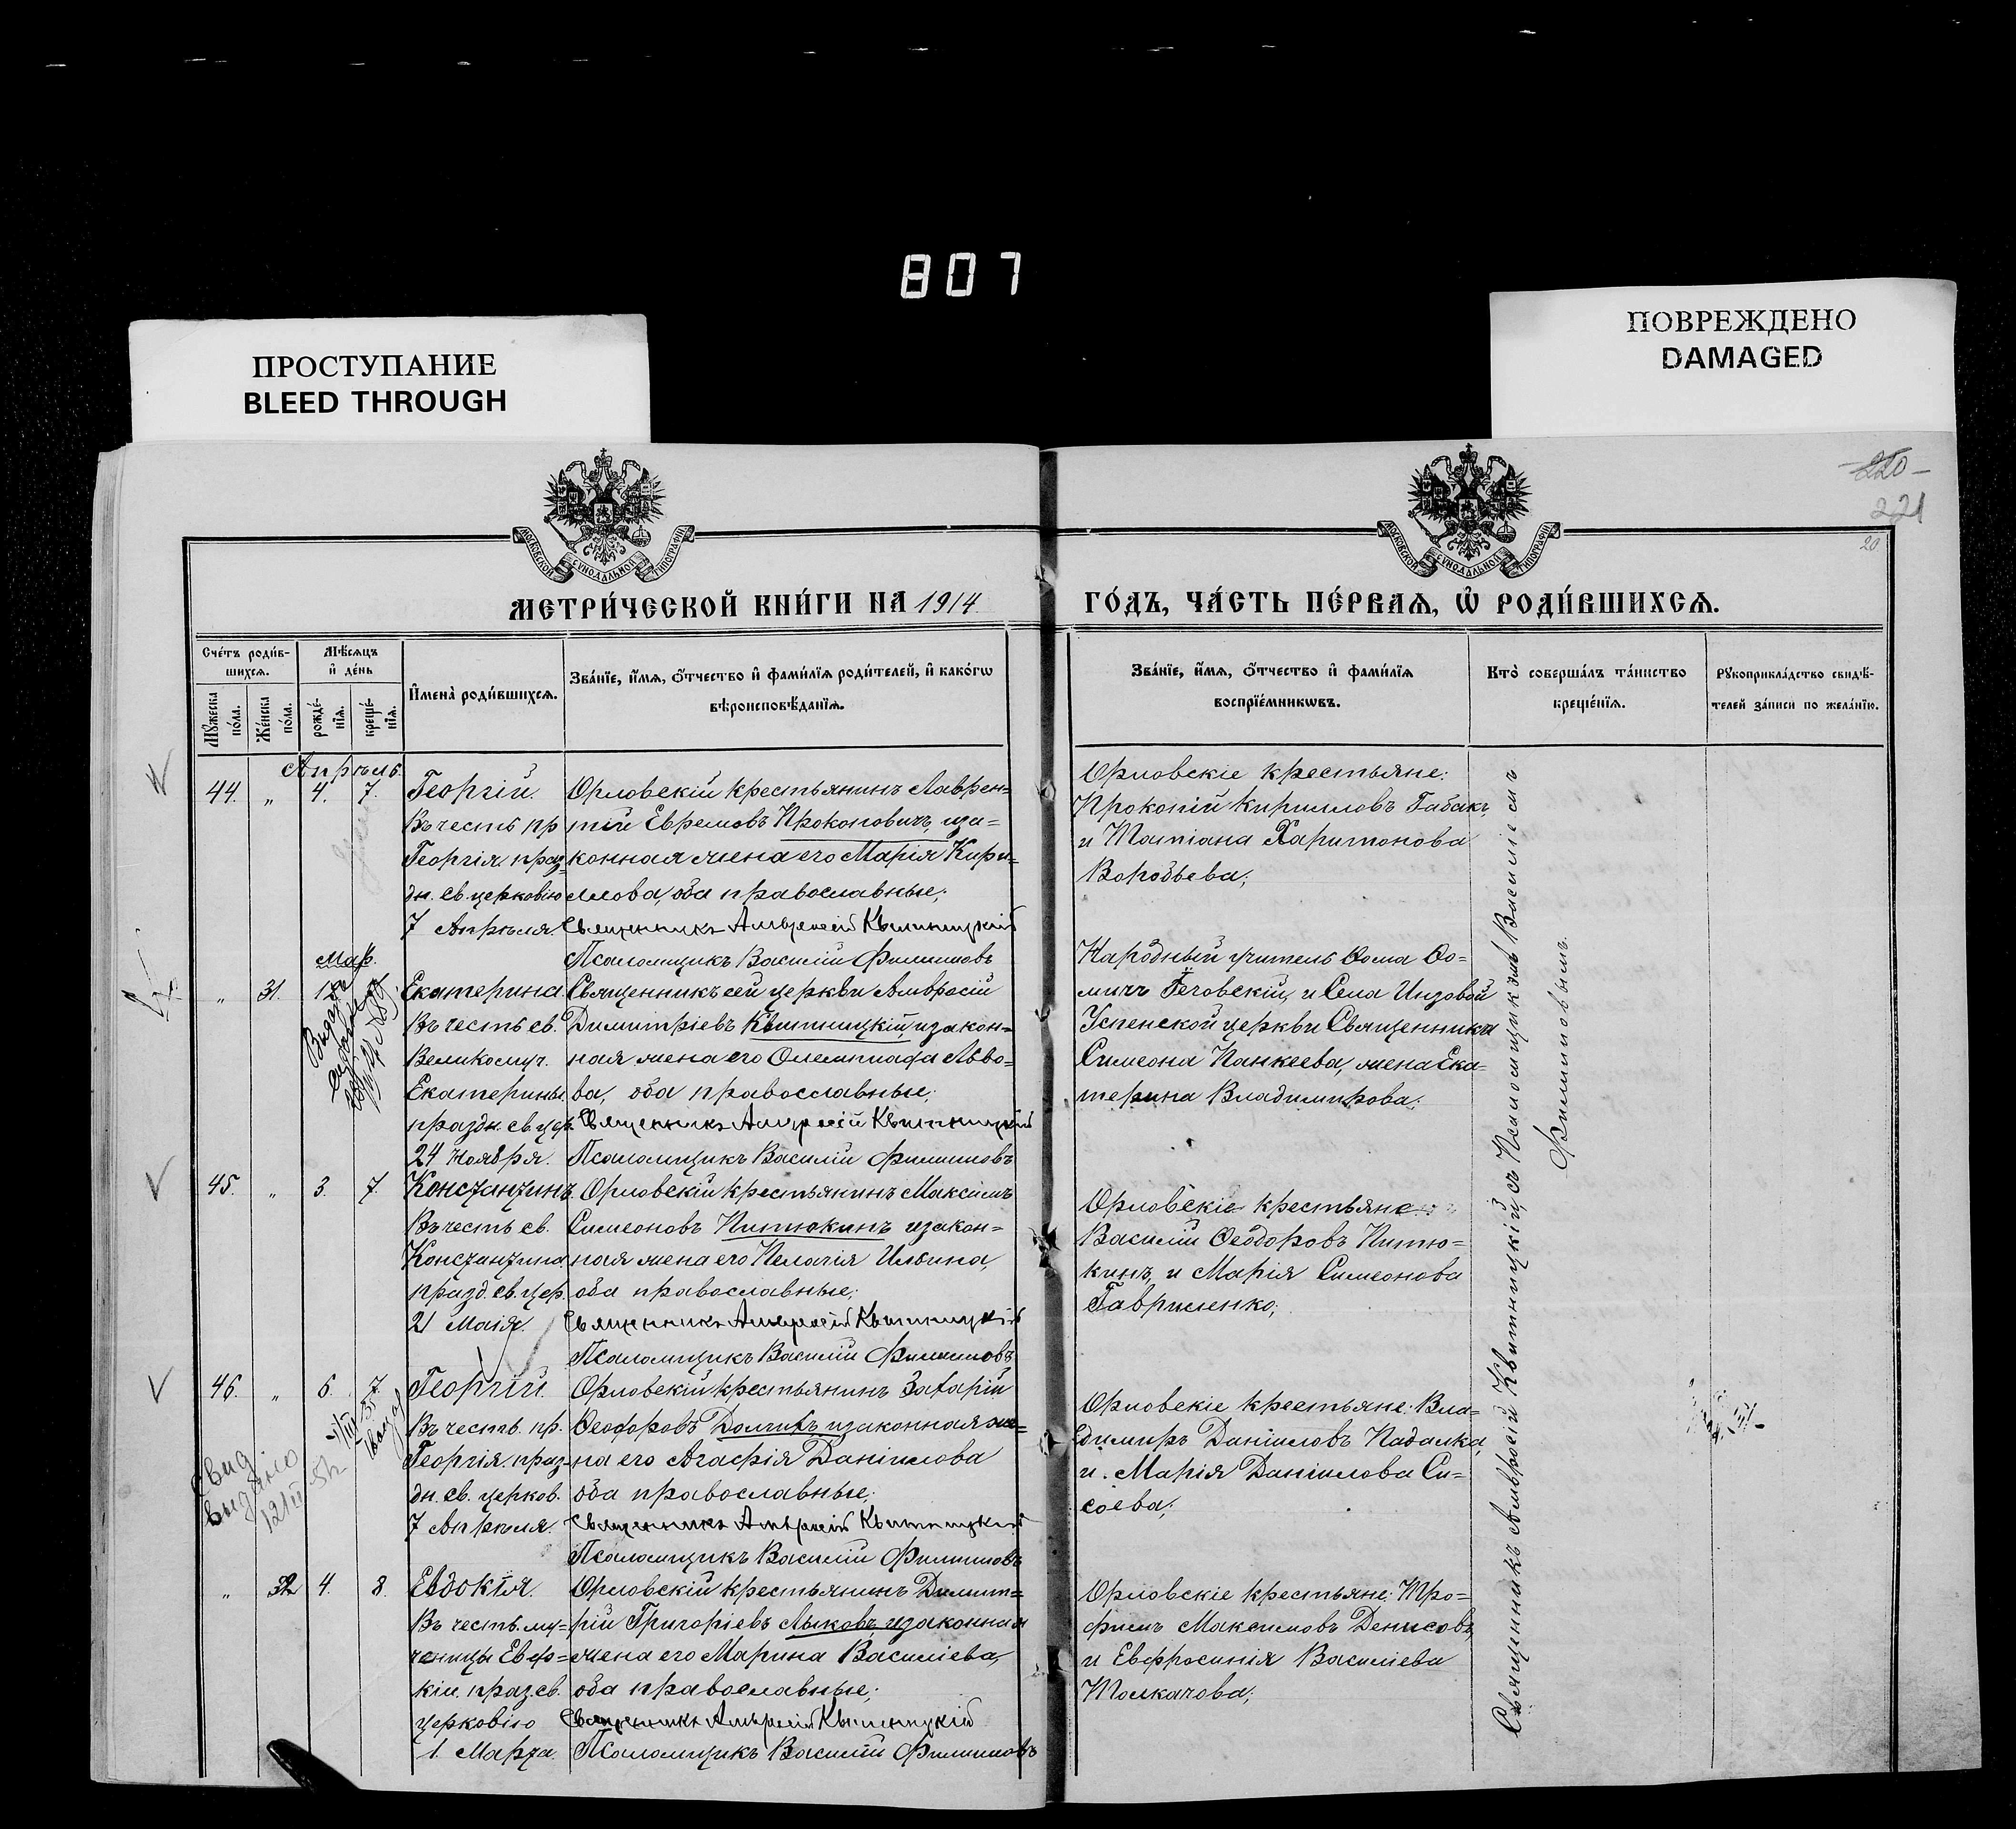 807
ПРОСТУПАНИЕ
BLEED THROUGH
ПОВРЕЖДЕНО
DAMAGED
220
221
20
МОСКОВСКОЙ СѴНОДАЛЬНОЙ ТИПОГРАФІИ
МОСКОВСКОЙ СѴНОДАЛЬНОЙ ТИПОГРАФІИ
МЕТРИ́ЧЕСКОЙ КНИ́ГИ НА 1914
ГО́ДЪ, ЧА́СТЬ ПЕ́РВАѦ, Ѽ РОДИ́ВШИХСѦ.
Сче́тъ роди́в-
шихсѧ.
Мꙋ́жеска
по́ла.
Же́нска
по́ла.
Мѣ́сѧцъ
и҆ де́нь
рожде́-
нїѧ.
креще́-
нїѧ.
И҆мена̀ роди́вшихсѧ.
Зва́нїе, и҆́мѧ, ѻ҆́тчество и҆ фами́лїѧ роди́телей, и҆ како́гѡ
вѣроисповѣ́данїѧ.
Зва́нїе, и҆́мѧ, ѻ҆́тчество и҆ фами́лїѧ
воспрїе́мникѡвъ.
Кто̀ соверша́лъ та́инство
креще́нїѧ.
Рꙋкоприкла́дство свидѣ́-
телей за́писи по жела́нїю.
Апрѣль.
44. " 4. 7.
Георгій.
Въ честь пр
Георгія праз-
дн. св. церковію
7 Апрѣля.
Орловскій крестьянинъ Лаврен=
тій Ефремовъ Прокоповичъ, иза=
конная жена его Марія Кири=
ллова, оба православные;
Священникъ Амвросій Квитницкій
Псаломщикъ Василій Филимоновъ
Орловскіе крестьяне:
Прокопій Кирилловъ Габакъ,
и Татіана Харитонова
Воробьева;
Мар.
" 31.
Екатерина.
Въ честь св.
Великомуч.
Екатерины
праздн. св. цер.
24 Ноября.
Священникъ сей церкви Амвросій
Димитріевъ Квитницкій, изакон=
ная жена его Олимпіада Льво=
ва, оба православные;
Священникъ Амвросій Квитницкій
Псаломщикъ Василій Филимоновъ
Народный учитель Ѳома Ѳо=
мичъ и Села Инзовой
Успенской церкви Священника
Симеона Панкеева, жена Ека=
терина Владимірова;
45. " 3. 7.
Константинъ.
Въ честь св.
Константина
празд. св. цер.
21 Маія.
Орловскій крестьянинъ Максимъ
Симеоновъ Питюкинъ изакон=
ная жена его Пелагія Ильина,
оба православные;
Священникъ Амвросій Квитницкій
Псаломщикъ Василій Филимоновъ
Орловскіе крестьяне:
Василій Ѳеодоровъ Питю=
кинъ, и Марія Симеонова
Гавриленко;
46. " 6. 7.
Георгій.
Въ честь. пр.
Георгія. праз-
дн. св. церков.
7 Апрѣля.
Орловскій крестьянинъ Захарій
Ѳеодоровъ изаконная же=
на его Агафія Даніилова
оба православные;
Священникъ Амвросій Квитницкій
Псаломщикъ Василій Филимоновъ
Орловскіе крестьяне: Вла=
димиръ Даніиловъ Падалка,
и. Марія Даніилова Си=
соева;
Свид
выдано
" 32 4. 8.
Евдокія.
Въ честь. му=
ченицы Евдо=
кіи. праз. св.
церковію
1. Марта.
Орловскій крестьянинъ Димит=
рій Григоріевъ Лыковъ, изаконная
жена его Марина Василіева,
оба православные;
Священникъ Амвросій Квитницкій
Псаломщикъ Василій Филимоновъ
Орловскіе крестьяне: Тро=
фимъ Максимовъ Денисовъ,
и Евфросинія Василіева
Толкачова;
Священникъ Амвросій Квитницкій съ Псаломщикомъ Василіемъ
Филимоновымъ.